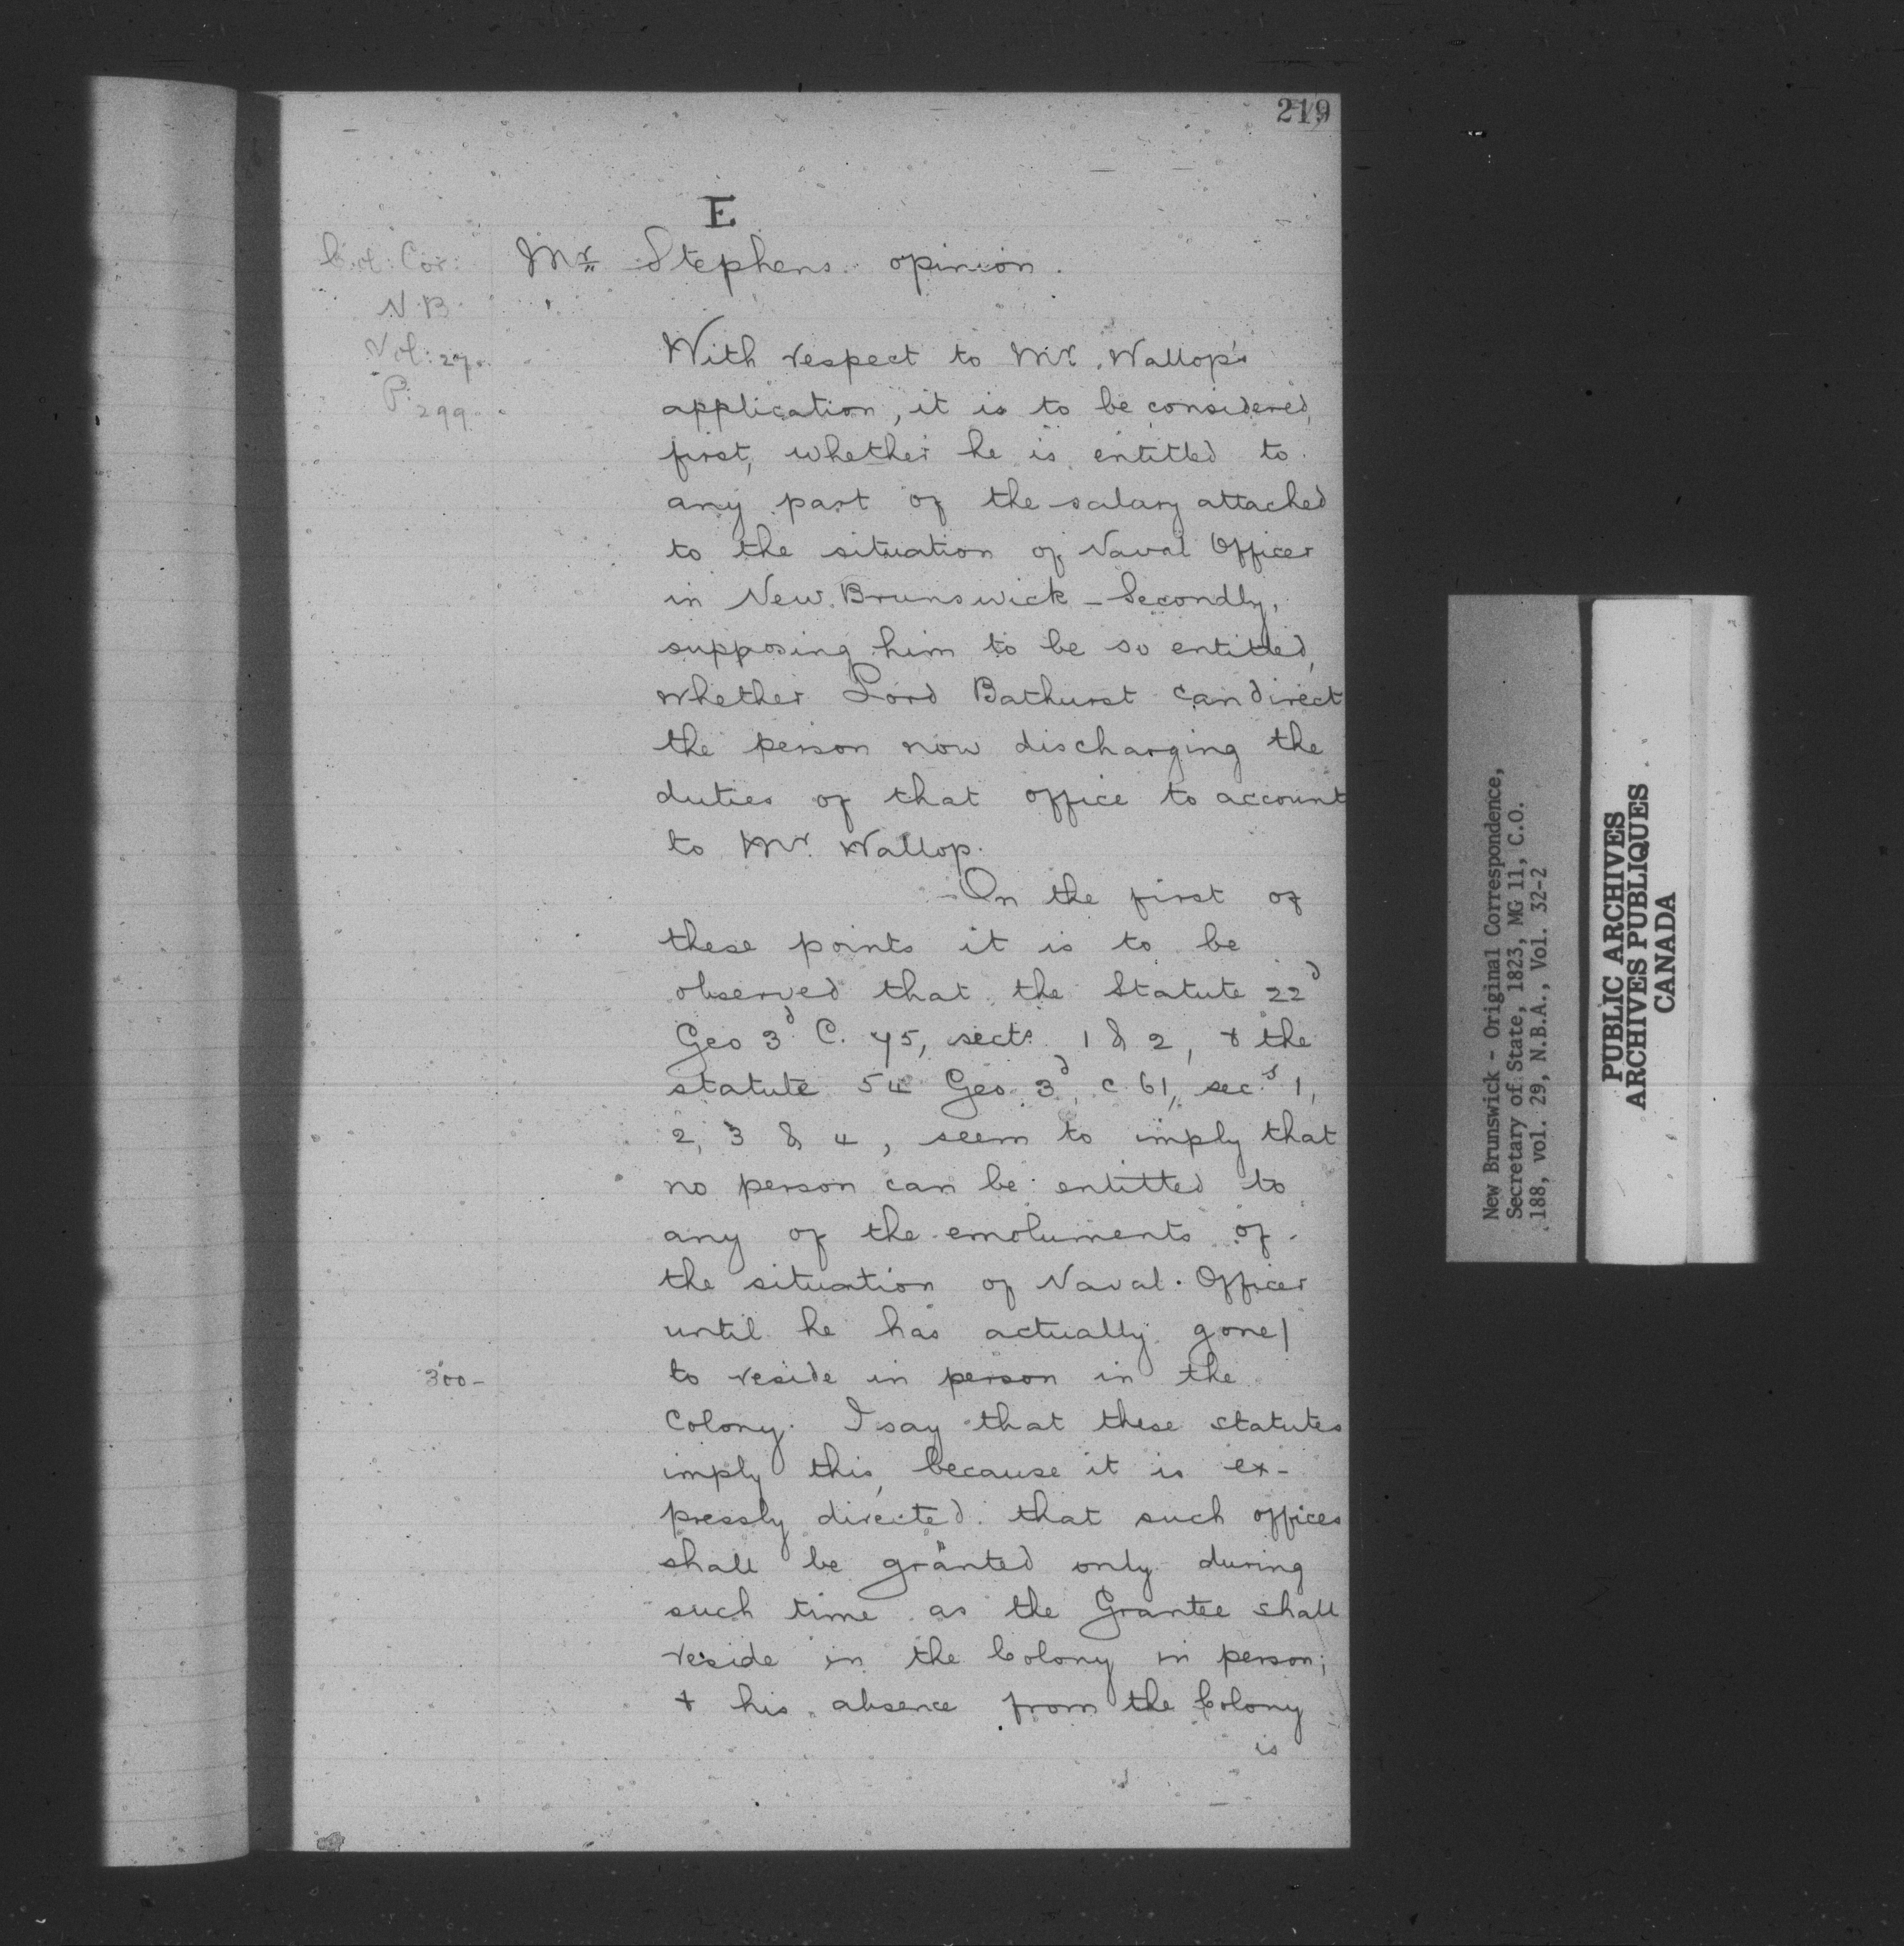 219
E
Col: Cor:
N.B.
Vol: 29.
P. 299.
Mr Stephens opinion.
With respect to Mr. Wallop's
application, it is to be considered,
first, whether he is entitled to
any part of the salary attached
to the situation of Naval Officer
in New Brunswick - Secondly,
supposing him to be so entitled,
whether Lord Bathurst can direct
the person now discharging the
duties of that office to account
to Mr. Wallop.
On the first of
these points it is to be
observed that the Statute 22d
Geo 3d C. 75, sects 1 & 2, & the
statute 54 Geo 3d, c 61, secs 1,
2, 3 & 4, seem to imply that
no person can be entitled to
any of the emoluments of
the situation of Naval Officer
until he has actually gone/
300-
to reside in person in the
Colony. I say that these statutes
imply this, because it is ex-
pressly directed that such offices
shall be granted only during
such time as the Grantee shall
reside in the Colony in person;
& his absence from the Colony
is
New Brunswick - Original Correspondence,
Secretary of State, 1823, MG 11, C.O.
188, vol. 29, N.B.A., Vol. 32-2
PUBLIC ARCHIVES
ARCHIVES PUBLIQUES
CANADA